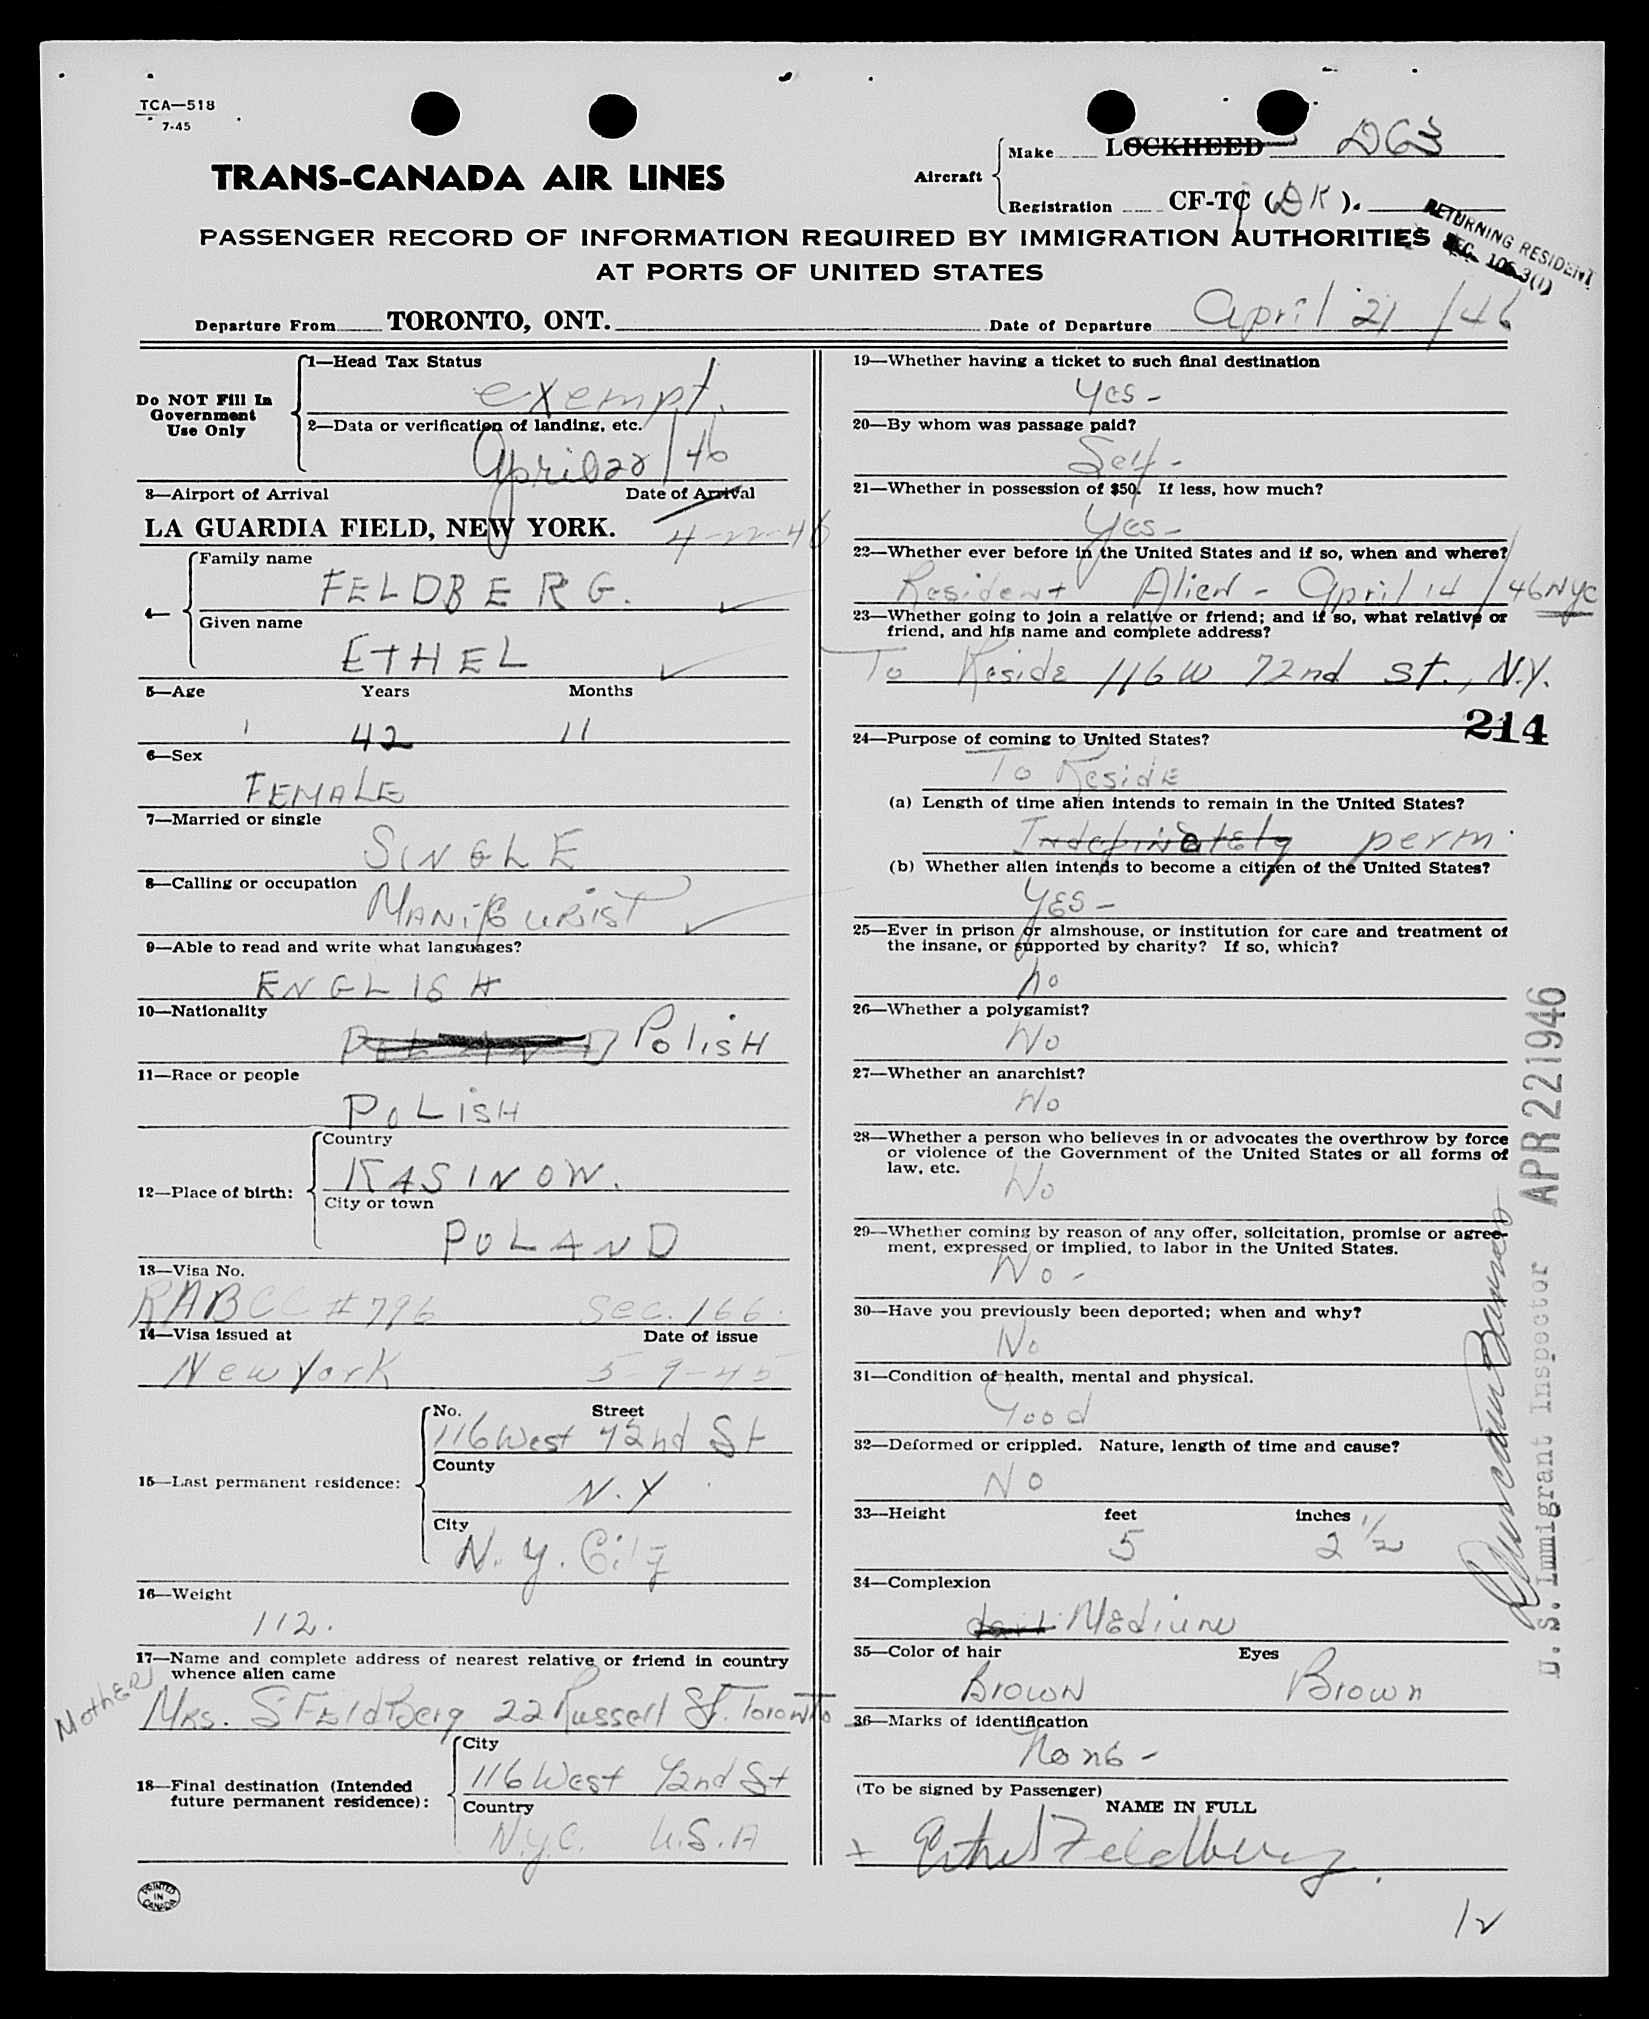 TCA—518
7-45
TRANS-CANADA AIR LINES
Aircraft
Make LOCKHEED DC3
Registration CF-TC (DK).
RETURNING RESIDENT
SEC. 106.3(1)
PASSENGER RECORD OF INFORMATION REQUIRED BY IMMIGRATION AUTHORITIES
AT PORTS OF UNITED STATES
Departure From TORONTO, ONT. Date of Departure April 21/46
Do NOT Fill In
Government
Use Only
1—Head Tax Status
exempt.
2—Data or verification of landing, etc.
April 22/46
3—Airport of Arrival Date of Arrival
LA GUARDIA FIELD, NEW YORK. 4-22-46
4—
Family name
FELDBERG.
Given name
ETHEL
5—Age Years Months
42 11
6—Sex
FEMALE
7—Married or single
SINGLE
8—Calling or occupation
MANICURIST
9—Able to read and write what languages?
ENGLISH
10—Nationality
POLAND POLISH
11—Race or people
POLISH
12—Place of birth:
Country
KASINOW.
City or town
POLAND
13—Visa No.
RABCC #796 Sec. 166.
14—Visa issued at Date of issue
New York 5-9-45
15—Last permanent residence:
No. Street
116 West 72nd St
County
N.Y
City
N.Y. City
16—Weight
112.
17—Name and complete address of nearest relative or friend in country
whence alien came
Mother
Mrs. S FEldBerg 22 Russell St. Toronto
18—Final destination (Intended
future permanent residence):
City
116 West 72nd St
Country
N.Y.C. U.S.A
PRINTED
IN
CANADA
19—Whether having a ticket to such final destination
Yes-
20—By whom was passage paid?
Self-
21—Whether in possession of $50. If less, how much?
Yes-
22—Whether ever before in the United States and if so, when and where?
Resident Alien - April 14/46 NYC
23—Whether going to join a relative or friend; and if so, what relative or
friend, and his name and complete address?
To Reside 116 W 72nd St., N.Y.
214
24—Purpose of coming to United States?
To Reside
(a) Length of time alien intends to remain in the United States?
Indefinately perm
(b) Whether alien intends to become a citizen of the United States?
YES-
25—Ever in prison or almshouse, or institution for care and treatment of
the insane, or supported by charity? If so, which?
no
26—Whether a polygamist?
No
27—Whether an anarchist?
No
28—Whether a person who believes in or advocates the overthrow by force
or violence of the Government of the United States or all forms of
law, etc.
No
29—Whether coming by reason of any offer, solicitation, promise or agree-
ment, expressed or implied, to labor in the United States.
No-
30—Have you previously been deported; when and why?
No
31—Condition of health, mental and physical.
Good
32—Deformed or crippled. Nature, length of time and cause?
No
33—Height feet inches
5 2 1/2
34—Complexion
dark Medium
35—Color of hair Eyes
Brown Brown
36—Marks of identification
None-
(To be signed by Passenger)
NAME IN FULL
x Ethel Feldberg.
12
APR 22 1946
U. S. Immigrant Inspector